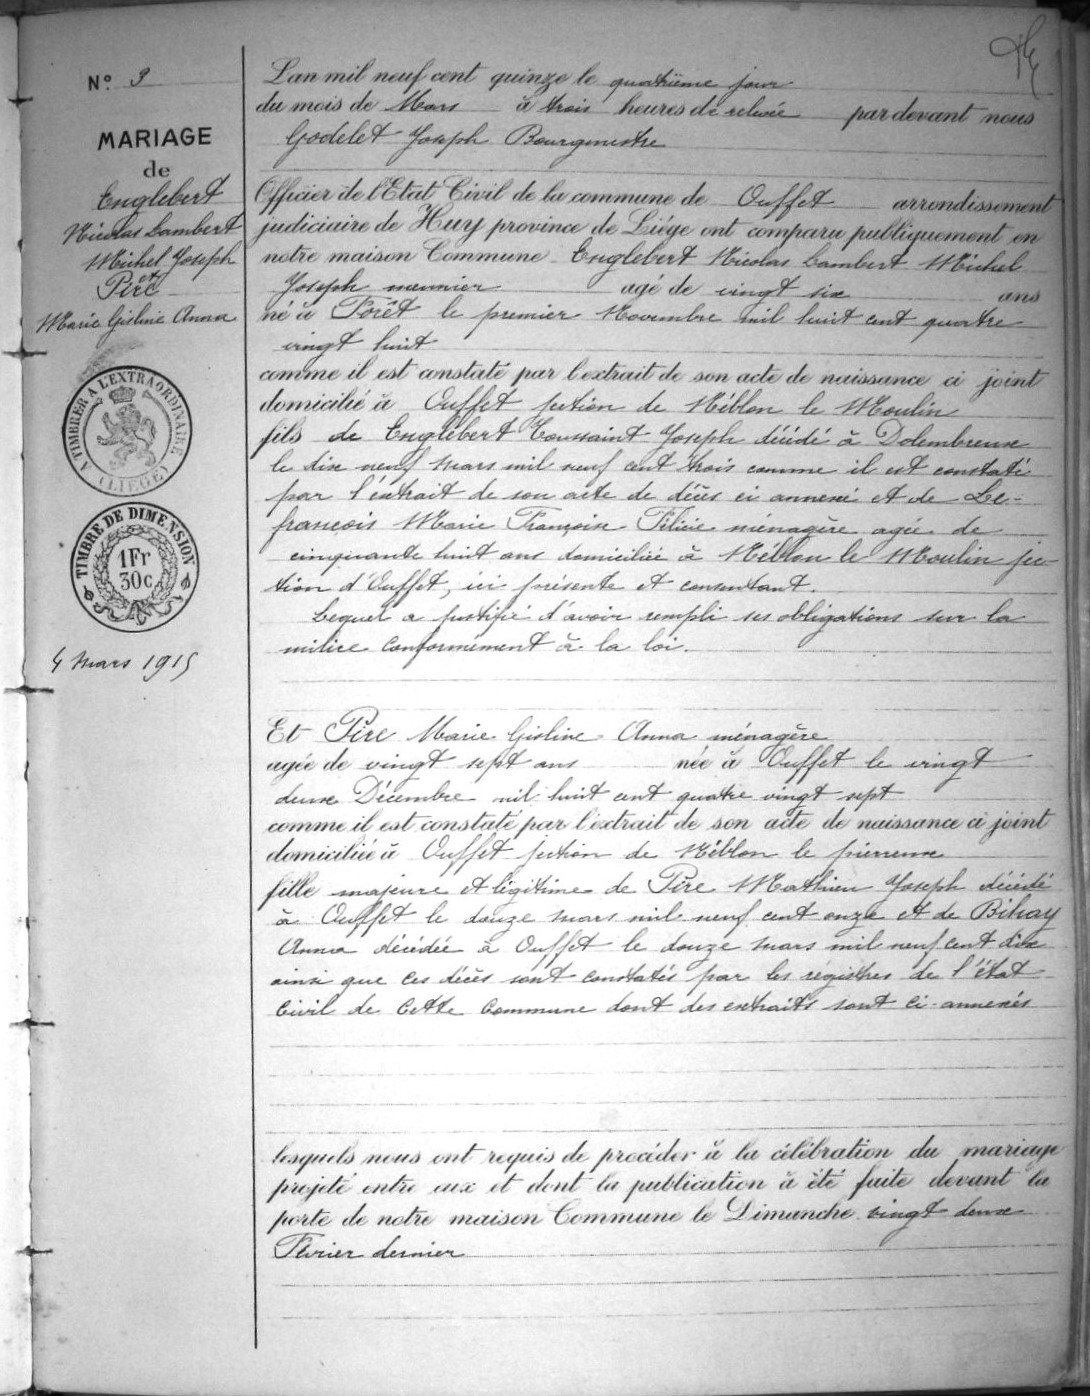 N.º 3
MARIAGE
de
Englebert
Nicolas Lambert
Michel Joseph
et
Pire
Marie Gisline Anna
A TIMBRER A L'EXTRAORDINAIRE
(LIEGE)
TIMBRE DE DIMENSION
1Fr
30c
4 mars 1915
L'an mil neuf cent quinze le quatrième jour
du mois de Mars à trois heures de relevée par devant nous
Godelet Joseph Bourgmestre
Officier de l'Etat Civil de la commune de Ouffet arrondissement
judiciaire de Huy province de Liége ont comparu publiquement en
notre maison Commune Englebert Nicolas Lambert Michel
Joseph meunier agé de vingt six ans
né à Forêt le premier Novembre mil huit cent quatre
vingt huit
comme il est constaté par l'extrait de son acte de naissance ci joint
domicilié à Ouffet section de Néblon le Moulin
fils de Englebert Toussaint Joseph décédé à Dolembreux
le dix neuf mars mil neuf cent trois comme il est constaté
par l'extrait de son acte de décès ci annexé et de Le-
francois Marie Françoise Félicie ménagère agée de
cinquante huit ans domiciliée à Néblon le Moulin sec-
tion d'Ouffet, ici présente et consentant.
Lequel a justifié d'avoir rempli ses obligations sur la
milice conformément à la loi.
Et Pire Marie Gisline Anna ménagère
agée de vingt sept ans née à Ouffet le vingt
deux Décembre mil huit cent quatre vingt sept
comme il est constaté par l'extrait de son acte de naissance ci joint
domiciliée à Ouffet section de Néblon le pierreux
fille majeure et légitime de Pire Mathieu Joseph décédé
à Ouffet le douze mars mil neuf cent onze et de Bihay
Anna décédée à Ouffet le douze mars mil neuf cent dix
ainsi que ces décès sont constatés par les régistres de l'état
civil de cette commune dont des extraits sont ci-annexés
lesquels nous ont requis de procéder à la célébration du mariage
projeté entre eux et dont la publication à été faite devant la
porte de notre maison Commune le Dimanche vingt deux
Février dernier